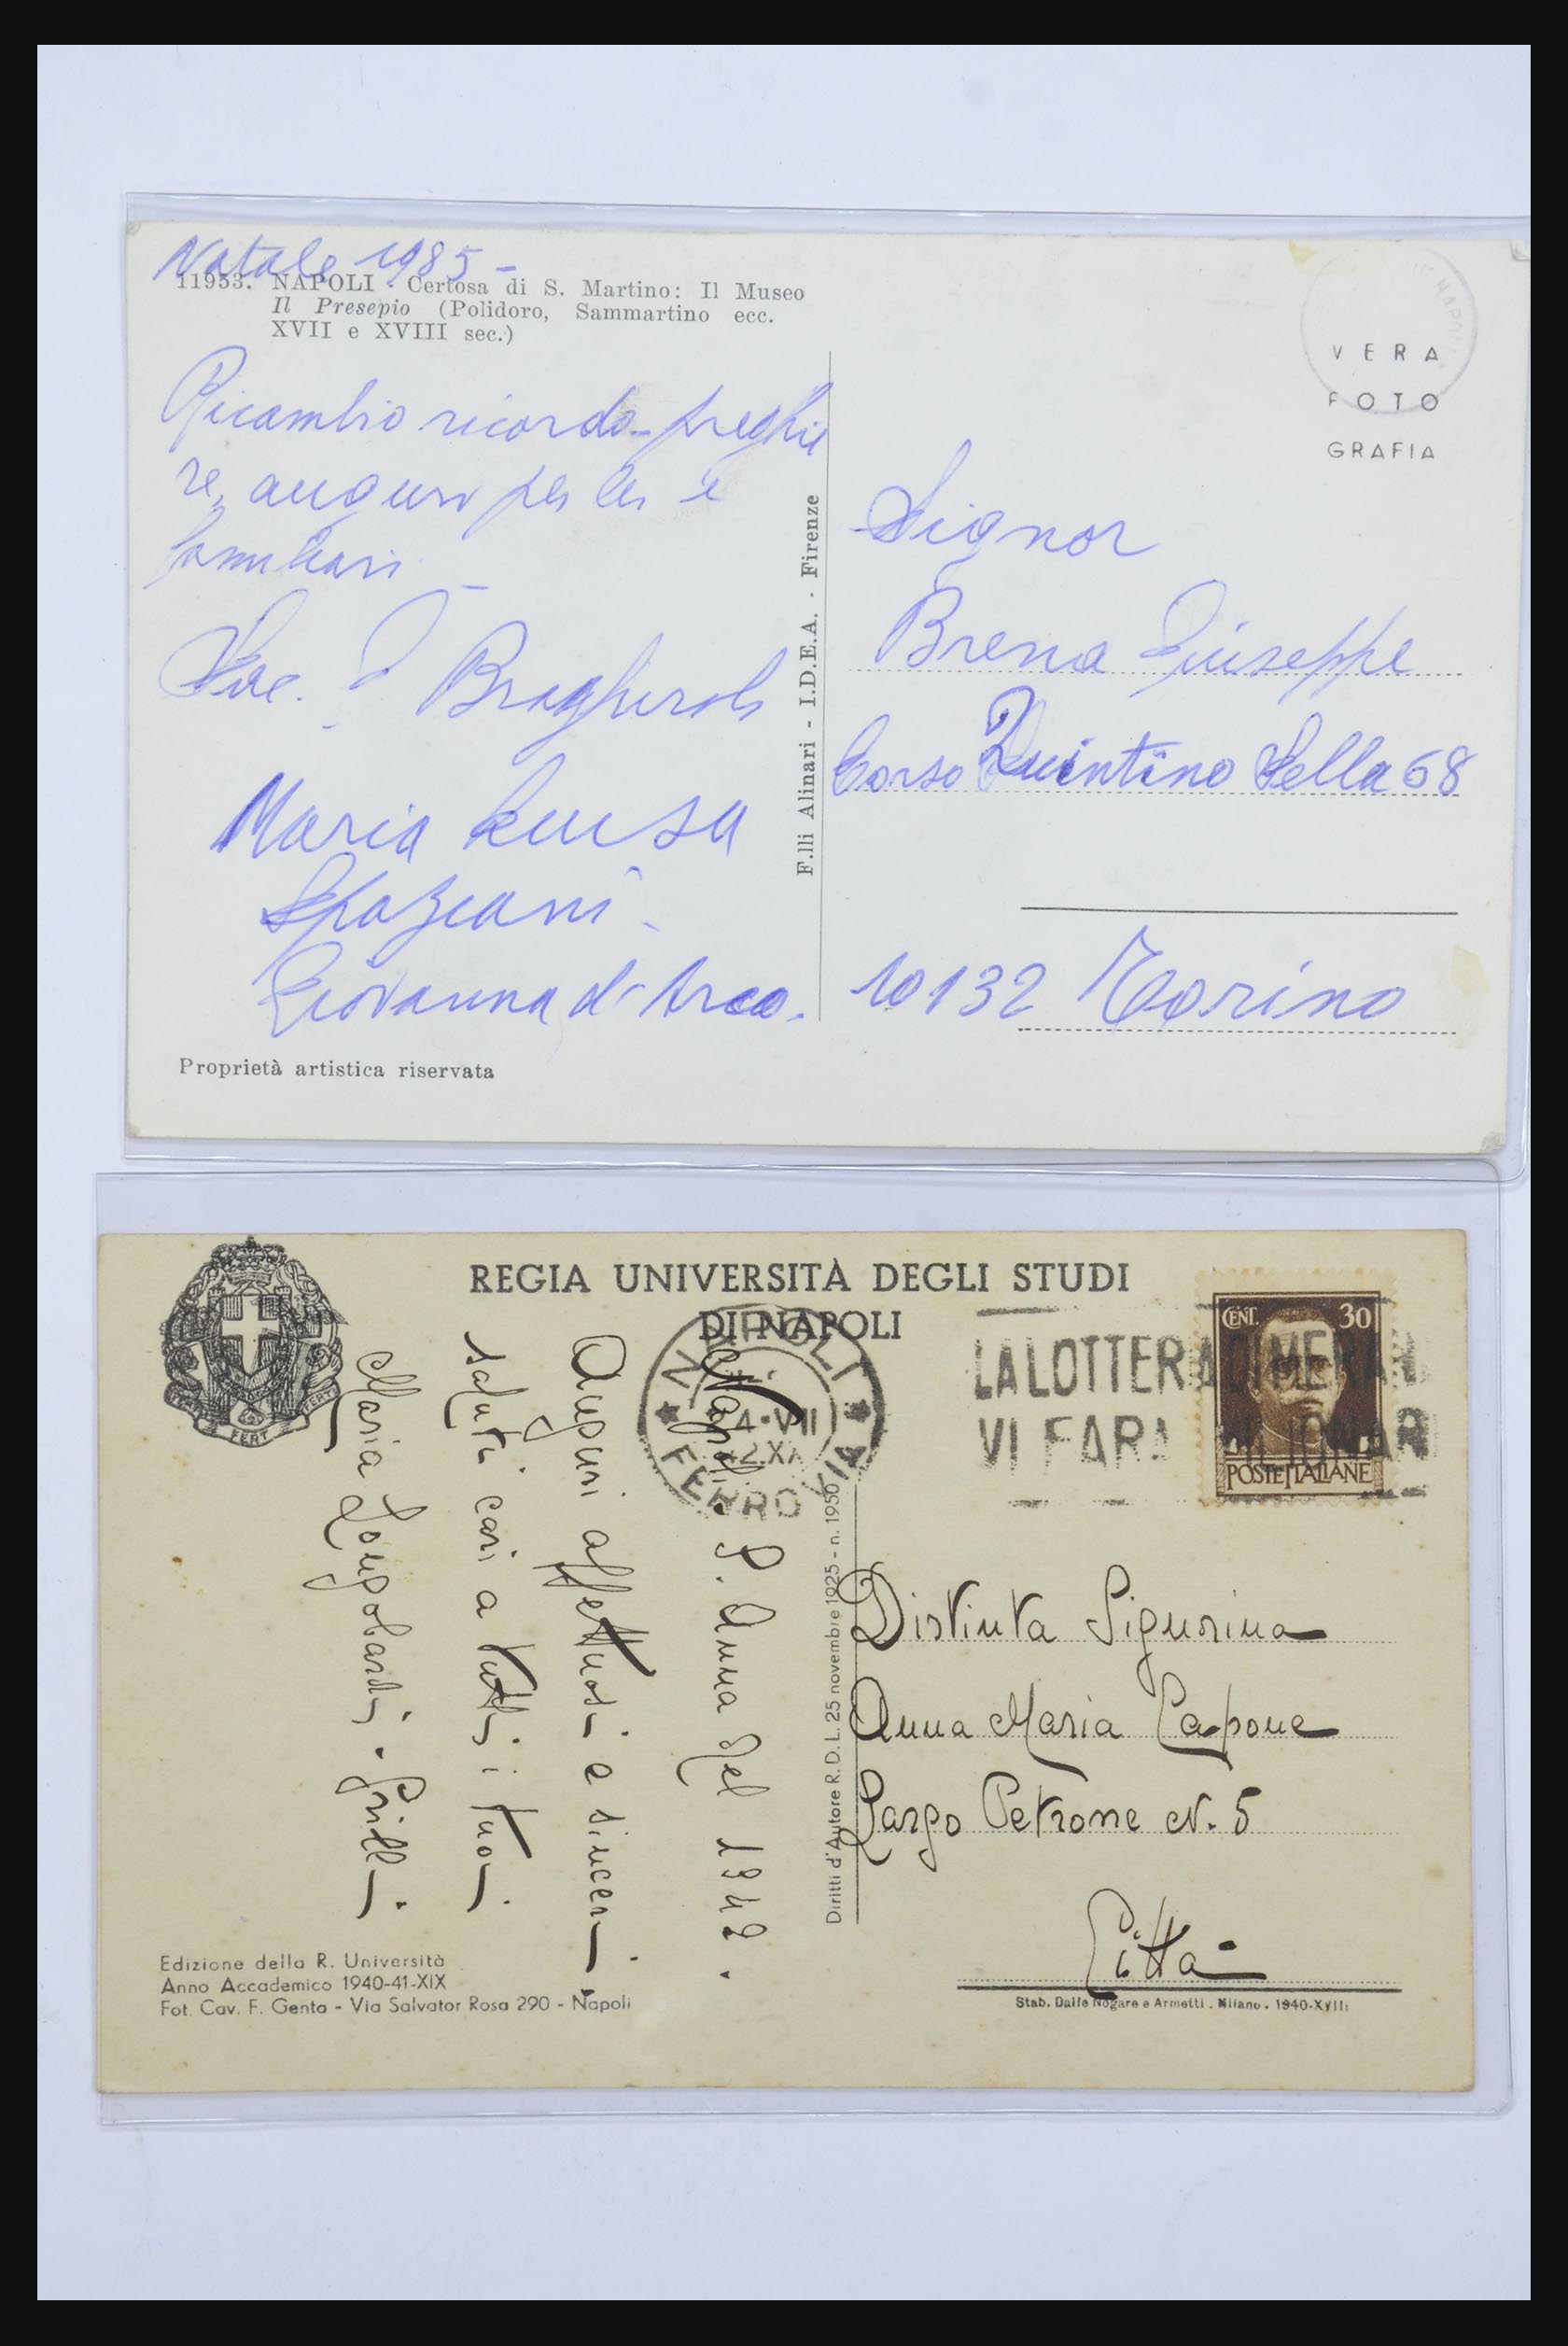 Natale 1985 -
11953. NAPOLI - Certosa di S. Martino: Il Museo
Il Presepio (Polidoro, Sammartino ecc.
XVII e XVIII sec.)
Ricambio ricordo - preghie
re, auguri per lei e
familiari
Maria Luisa
Spaziani -
Giovanna d'Arco.
Proprietà artistica riservata
F.lli Alinari - I.D.E.A. - Firenze
NAPOLI
VERA
FOTO
GRAFIA
Signor
Brena Giuseppe
Corso Quintino Sella 68
10132 Torino
REGIA UNIVERSITÀ DEGLI STUDI
DI NAPOLI
FERT
NAPOLI
24·VII
42.XX
FERROVIA
LA LOTTERIA DI MERANO
VI FARÀ MILIONARI
CENT. 30
POSTE ITALIANE
Napoli. S. Anna del 1942.
Auguri affettuosi e sinceri.
saluti cari a tutti i tuoi.
Maria Longobardi - Grilli.
Diritti d'Autore R. D. L. 25 novembre 1925 - n. 1950
Distinta Signorina
Anna Maria Capone
Largo Petrone N. 5
Città
Edizione della R. Università
Anno Accademico 1940-41-XIX
Fot. Cav. F. Genta - Via Salvator Rosa 290 - Napoli
Stab. Dalle Nogare e Armetti . Milano . 1940-XVIII